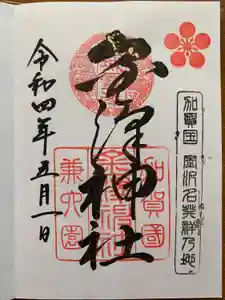 加賀国 金沢名発祥乃地
金澤神社
加賀國
金澤神社
兼六園
令和四年五月一日